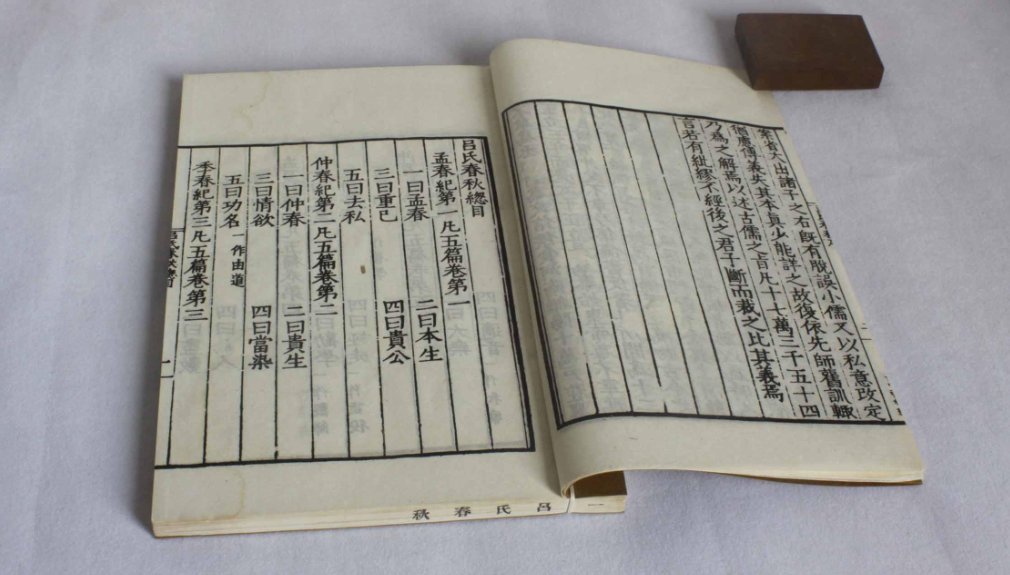 案省大出諸子之右既有脫誤小儒又以私意改定
猶慮傳義失其本真少能詳之故復依先師舊訓輒
乃爲之解焉以述古儒之旨凡十七萬三千五十四
言若有紕繆不經後之君子斷而裁之比其義焉
呂氏春秋總目
孟春紀第一凡五篇卷第一
一曰孟春 二曰本生
三曰重己 四曰貴公
五曰去私
仲春紀第二凡五篇卷第二
一曰仲春 二曰貴生
三曰情欲 四曰當染
五曰功名一作由道
季春紀第三凡五篇卷第三
呂氏春秋總目
一
呂氏春秋